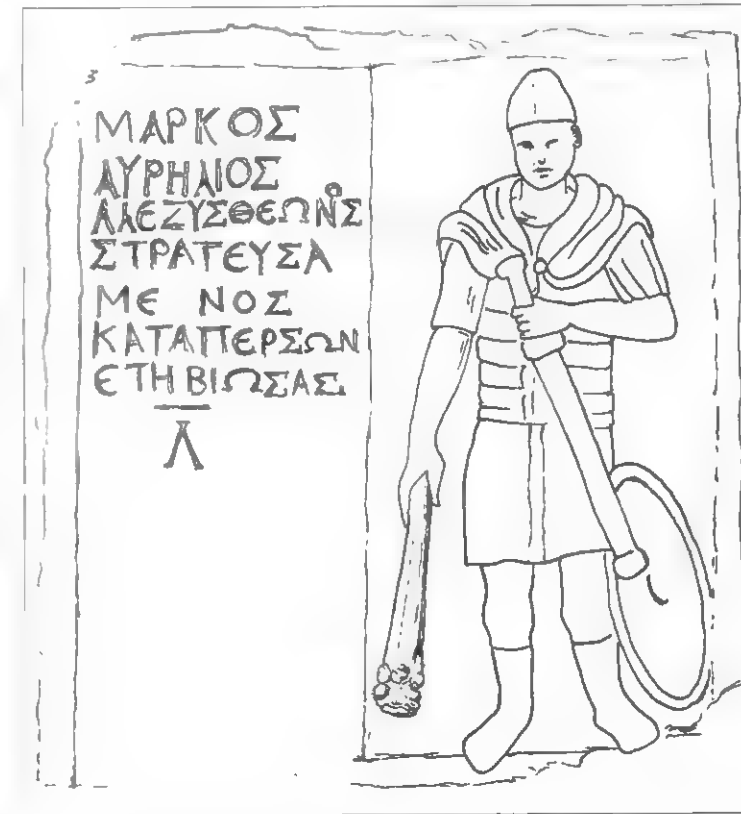 ΜΑΡΚΟΣ
ΑΥΡΗΛΙΟΣ
ΑΛΕΖΥΣΘΕΩΝΟΣ
ΣΤΡΑΤΕΥΣΑ
ΜΕ ΝΟΣ
ΚΑΤΑΠΕΡΣΩΝ
ΕΤΗ ΒΙΩΣΑΣ
Λ